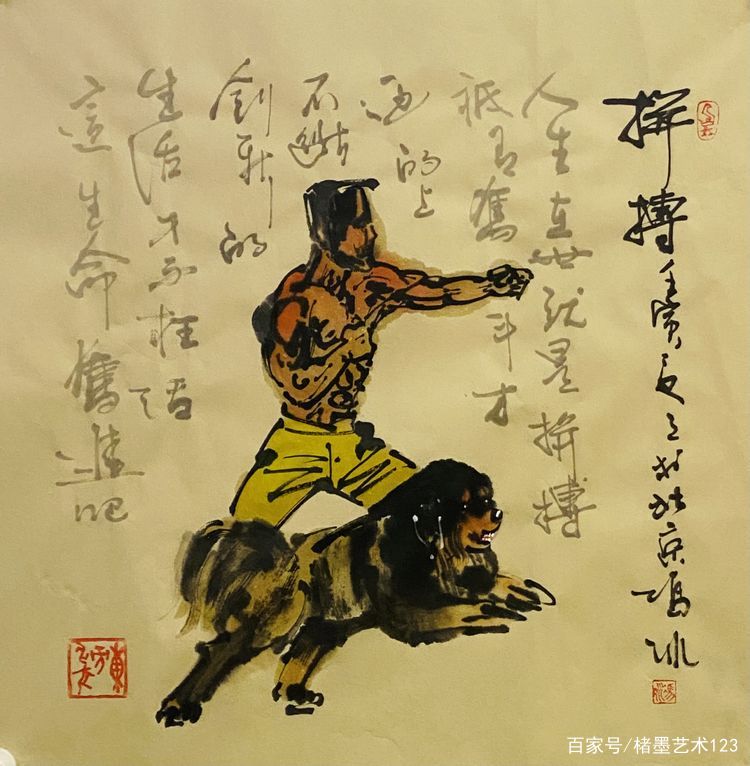 拼搏 壬寅夏之於北京馮冰
人生在世就是拼搏
祇有奮斗才
過的上
不斷
創新的
生活才不枉活
這生命奮進吧
百家号/楮墨艺术123